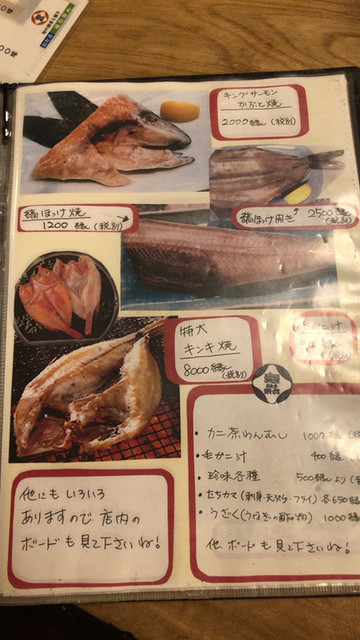 キングサーモン
かぶと焼
2000縁(税別)
縞ほっけ焼
1200縁(税別)
縞ほっけ開き 2500縁(税別)
特大
キンキ焼
8000縁(税別)
・カニ茶わんむし 1000縁
・毛がニ汁 400縁
・珍味各種 500縁より
・たちカマ(刺身・天ぷら・フライ)各650縁
・うざく(うなぎの酢の物) 1000縁
他、ボードも見て下さいね!
他にもいろいろ
ありますので、店内の
ボードも見て下さいね!